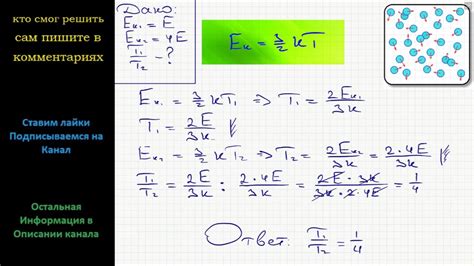 кто смог решить
сам пишите в
комментариях
Ставим лайки
Подписываемся на
Канал
Остальная
Информация в
Описании канала
Дано:
Eк₁ = E
Eк₂ = 4E
T₁/T₂ - ?
Eк = 3/2 кT
Eк₁ = 3/2 кT₁ => T₁ = 2Eк₁/3к
T₁ = 2E/3к
Eк₂ = 3/2 кT₂ => T₂ = 2Eк₂/3к = 2·4E/3к
T₁/T₂ = 2E/3к : 2·4E/3к = 2E·3к/3к·2·4E = 1/4
Ответ: T₁/T₂ = 1/4